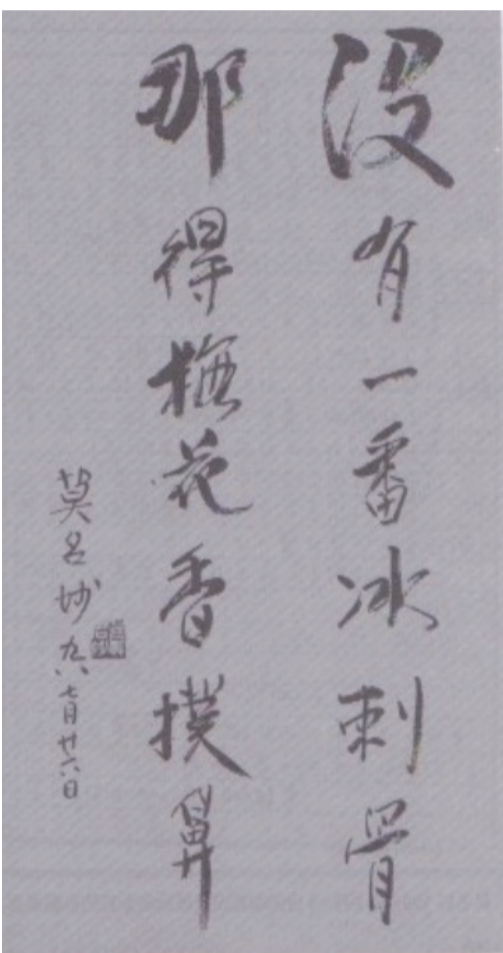 没有一番冰刺骨
那得梅花香撲鼻
莫名妙 九六 七月廿六日